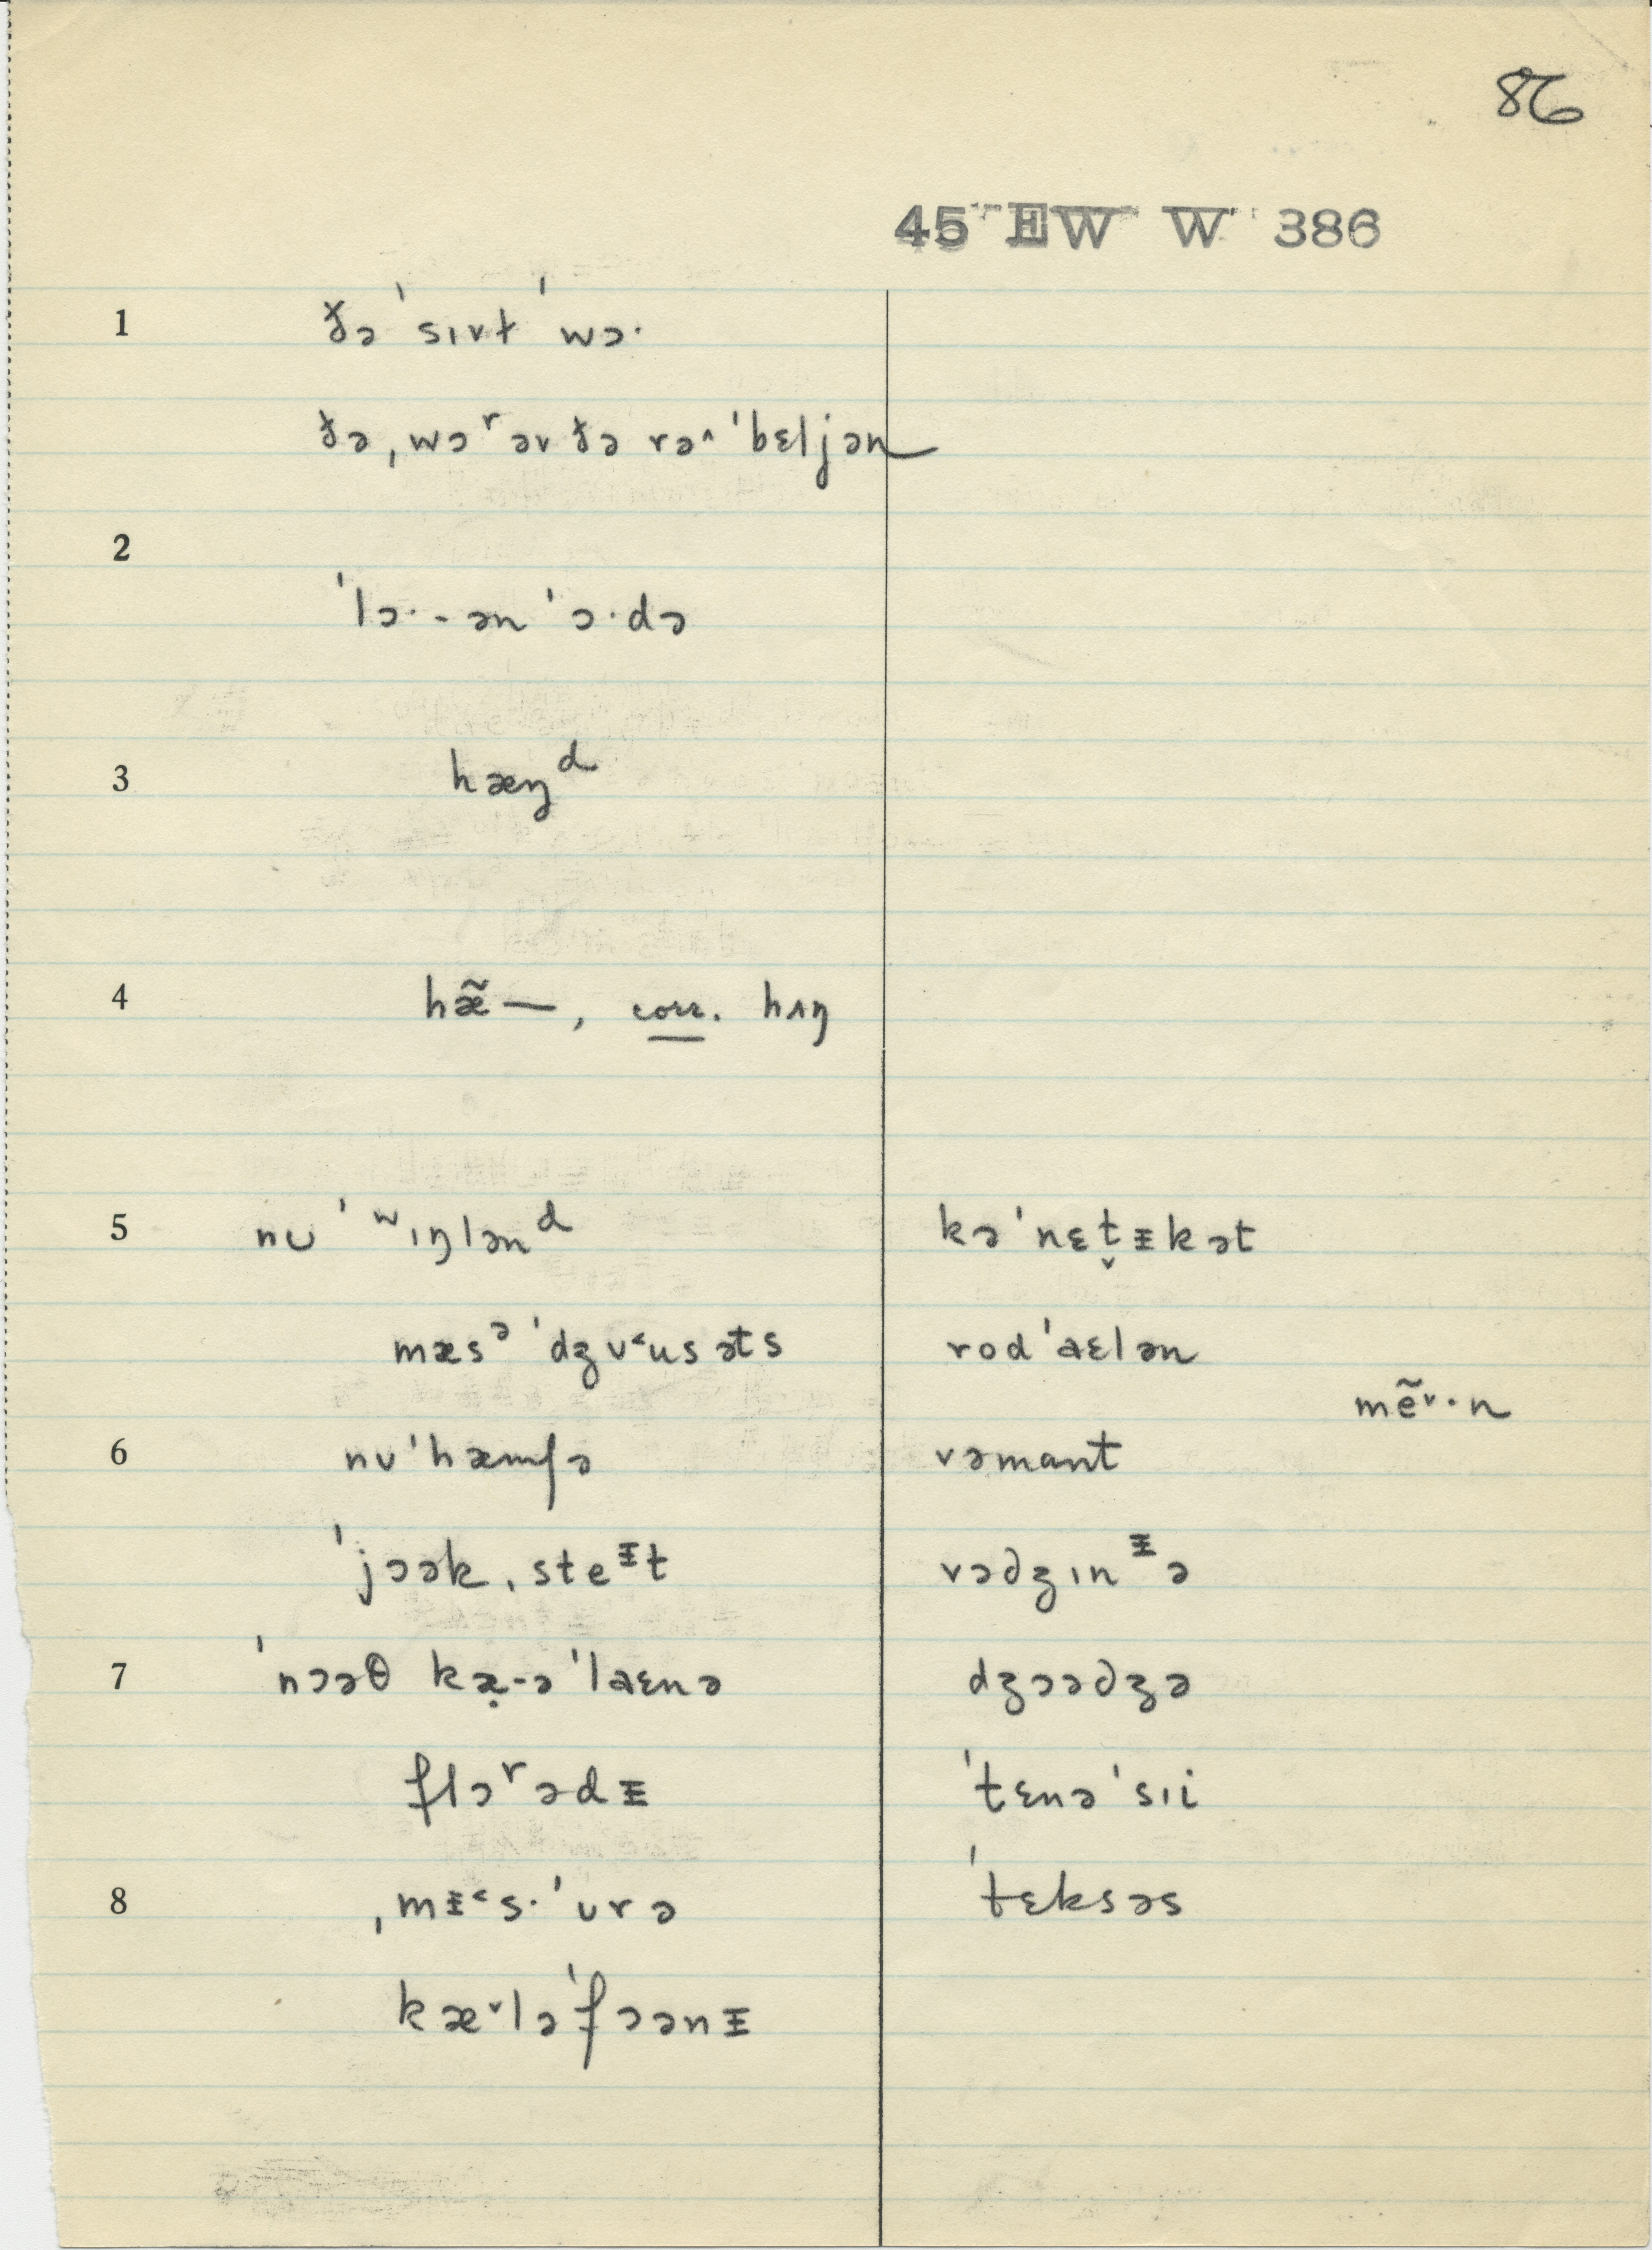 86
45 EW W 386
1 ðə ˈsɪvɫ ˈwɔ·
ðə ˌwɔʳ əv ðə rə^ ˈbɛljən
2
ˈlɔ·-ən ˈɔ·də
3 hæŋᵈ
4 hæ̃—, corr. hʌŋ
5 nᴜ ˈʷɪŋlənᵈ kə ˈnɛt̬ᵻkət
mæsᵊ ˈdʒᴜ˂usəts rod ˈaɛlən
mẽ˅·n
6 nᴜ ˈhæmʃə vəmant
ˈjɔək ˌsteᵻt vədʒɪnᵻə
7 ˈnɔəθ kæ̣-ə ˈlaɛnə dʒɔədʒə
flɔʳədᵻ ˈtɛnə ˈsɪi
8 ˌmᵻ˂s· ˈᴜrə ˈtɛksəs
kæ˅lə ˈfɔənᵻ